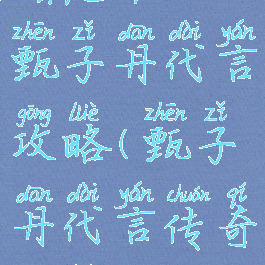 zhēn zǐ dān dài yán
甄子丹代言
gōng lüè zhēn zǐ
攻略(甄子
dān dài yán chuán qí
丹代言传奇